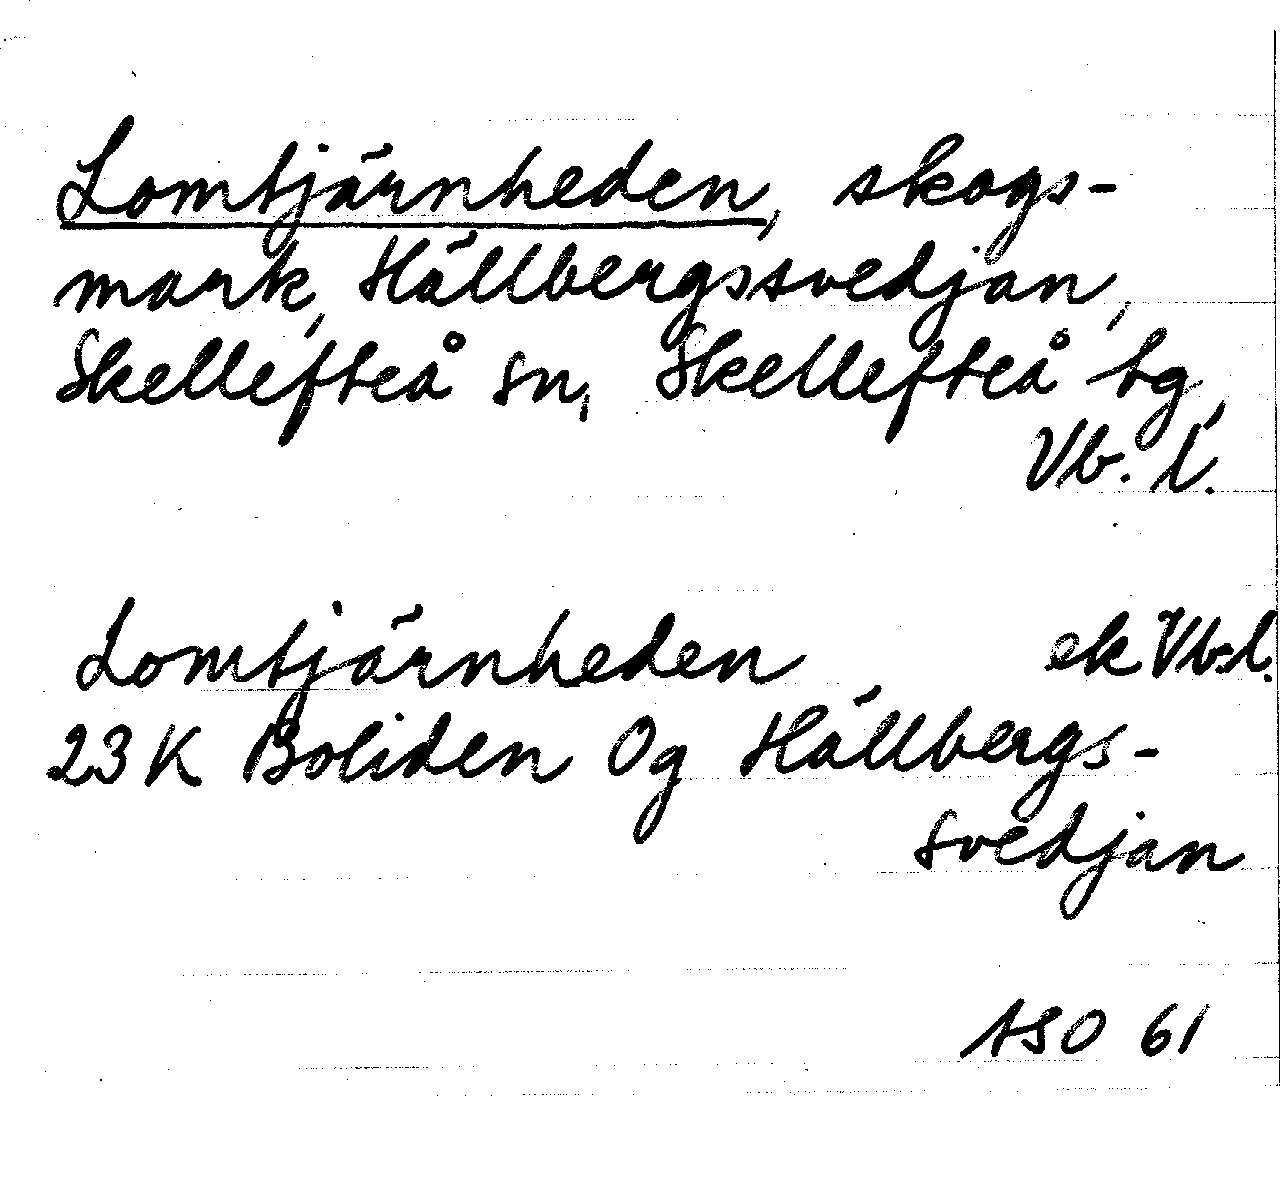 Lomtjärnheden, skogs-
mark, Hällbergssvedjan,
Skellefteå sn, Skellefteå tg,
Vb. l.
Lomtjärnheden ek Vb.l.
23 K Boliden Og Hällbergs-
svedjan
ASO 61